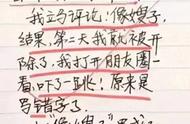 我立马评论：像嫂子
结果，第二天我就被开
除了，我打开朋友圈一
看，吓了一跳！原来是
写错字了